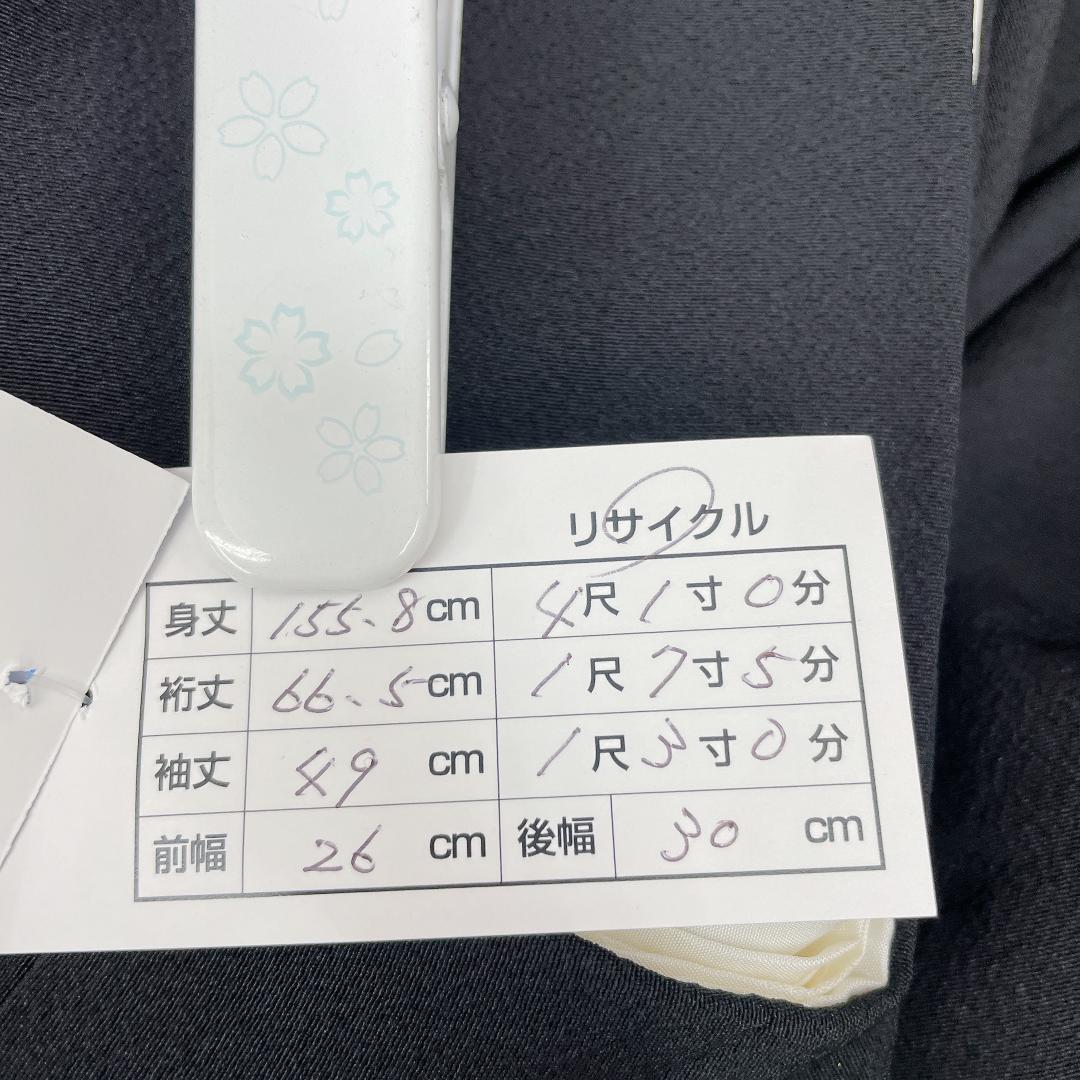 リサイクル
身丈 155.8cm 4尺1寸0分
裄丈 66.5cm 1尺7寸5分
袖丈 49 cm 1尺3寸0分
前幅 26 cm 後幅 30 cm